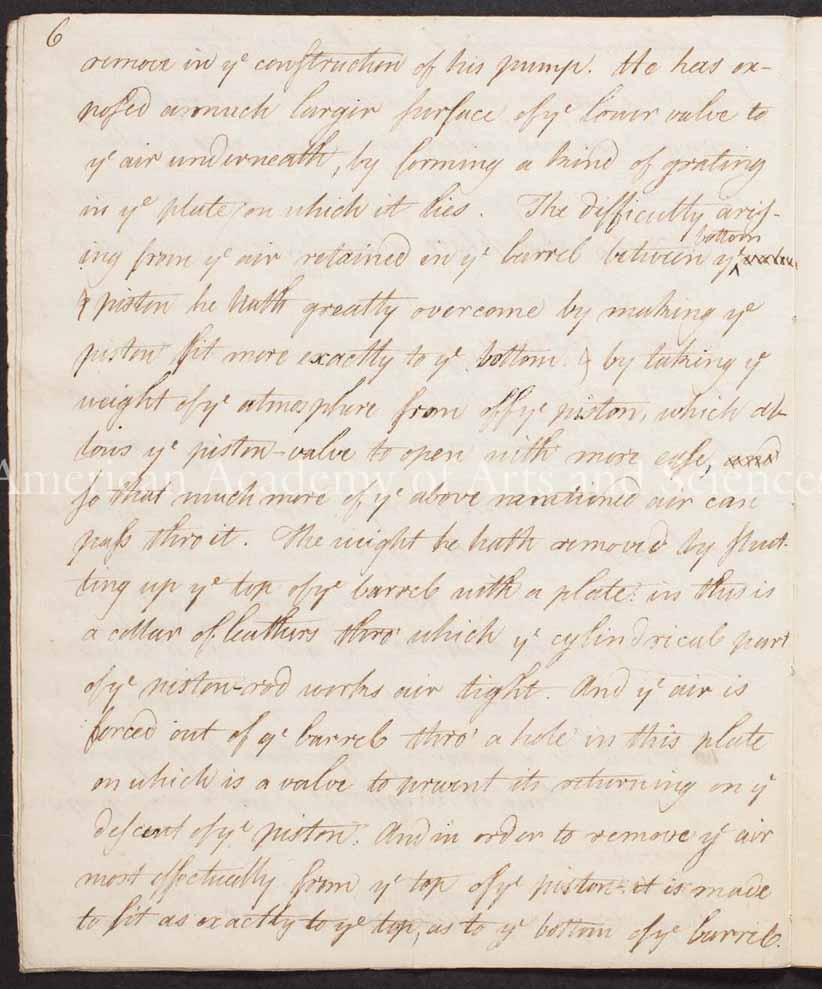 6
remove in yᵉ construction of his pump. He has ex-
posed a much larger surface of yᵉ lower valve to
yᵉ air underneath, by forming a kind of grating
in yᵉ plate on which it lies. The difficulty aris-
ing from yᵉ air retained in yᵉ barrel between yᵉ
bottom
& piston he hath greatly overcome by making yᵉ
piston fit more exactly to yᵉ bottom & by taking yᵉ
weight of yᵉ atmosphere from off yᵉ piston, which al-
lows yᵉ piston-valve to open with more ease, and
so that much more of yᵉ above mentioned air can
pass thro it. The weight he hath removed by shut-
ting up yᵉ top of yᵉ barrel with a plate: in this is
a collar of leathers thro' which yᵉ cylindrical part
of yᵉ piston-rod works air tight. And yᵉ air is
forced out of yᵉ barrel thro' a hole in this plate
on which is a valve to prevent its returning on yᵉ
descent of yᵉ piston. And in order to remove yᵉ air
most effectually from yᵉ top of yᵉ piston it is made
to fit as exactly to yᵉ top, as to yᵉ bottom of yᵉ barrel.
American Academy of Arts and Sciences